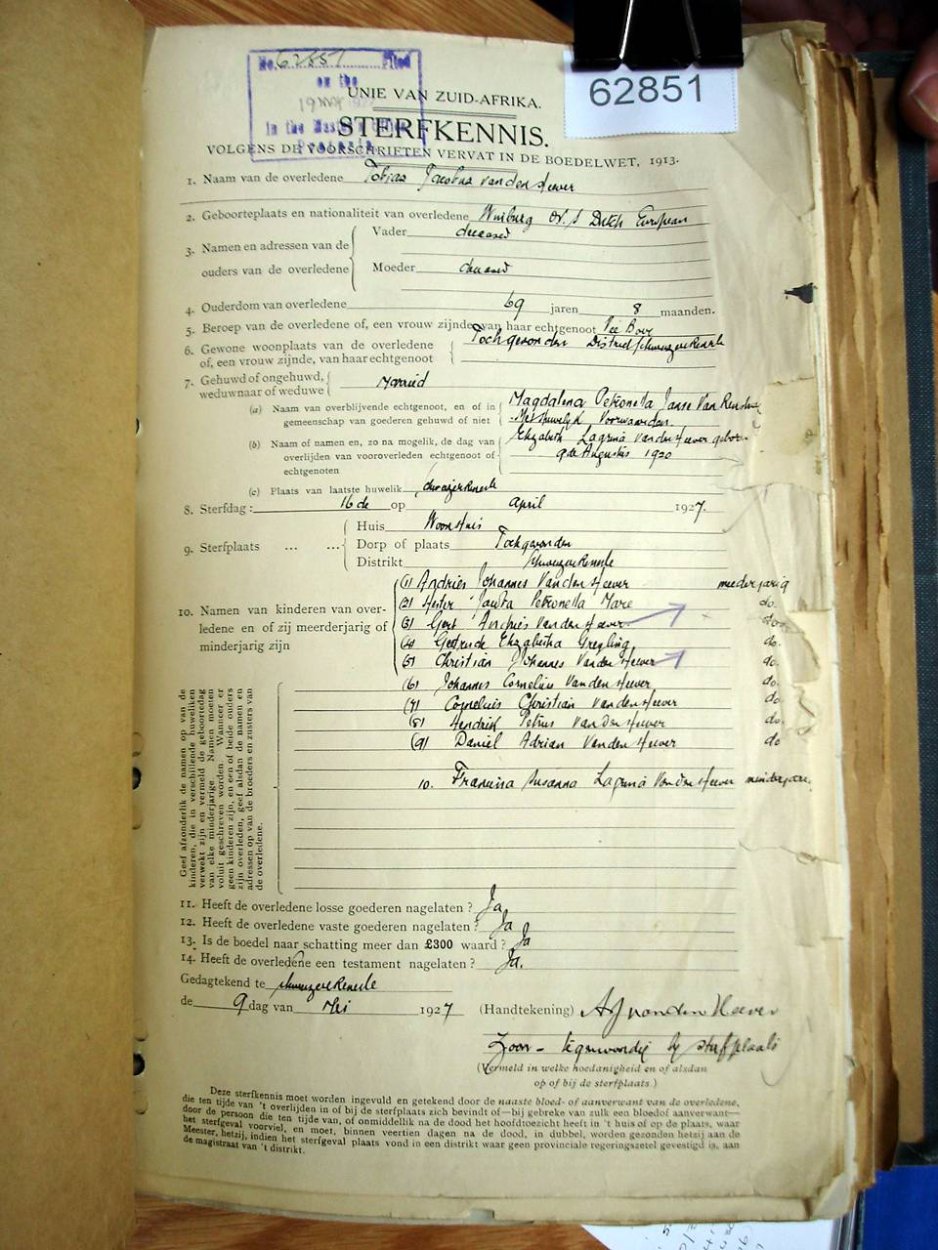 62851
No. 62851 Filed
on the
In the Master's Office
Pretoria
UNIE VAN ZUID-AFRIKA.
STERFKENNIS.
VOLGENS DE VOORSCHRIFTEN VERVAT IN DE BOEDELWET, 1913.
1. Naam van de overledene Tobias Jacobus van den Heever
2. Geboorteplaats en nationaliteit van overledene Winburg O.F.S Dutch European
3. Namen en adressen van de ouders van de overledene
Vader deceased
Moeder deceased
4. Ouderdom van overledene 69 jaren 8 maanden.
5. Beroep van de overledene of, een vrouw zijnde, van haar echtgenoot Vee Boer
6. Gewone woonplaats van de overledene of, een vrouw zijnde, van haar echtgenoot Tochgevonden District Schweizer Reneke
7. Gehuwd of ongehuwd, weduwnaar of weduwe Married
(a) Naam van overblijvende echtgenoot, en of in gemeenschap van goederen gehuwd of niet
Magdalena Petronella Janse Van
Met Huwelyk Voorwaarden
(b) Naam of namen en, zo na mogelik, de dag van overlijden van vooroverleden echtgenoot of echtgenoten
Elizabeth van den Heever
9de Augustus 1920
(c) Plaats van laatste huwelik Schweizer Reneke
8. Sterfdag: 16de op April 1927.
9. Sterfplaats ... ...
Huis Woonhuis
Dorp of plaats Tochgevonden
Distrikt Schweizer Reneke
10. Namen van kinderen van overledene en of zij meerderjarig of minderjarig zijn
(1) Andries Johannes Van den Heever meederjarig
(2) Hester Petronella Mare do.
(3) Gert Andries Van den Heever do.
(4) Elizabetha Greyling do.
(5) Christian Johannes Van den Heever do.
(6) Johannes Cornelius Van den Heever do.
(7) Cornelius Christian van den Heever do.
(8) Hendrik Petrus van Den Heever do.
(9) Daniel Adrian Van den Heever do
10. Francina Susanna Van den Heever
Geef afzonderlik de namen op van de
kinderen, die in verschillende huweliken
verwekt zijn en vermeld de geboortedag
van elke minderjarige. Namen moeten
voluit geschreven worden. Wanneer er
geen kinderen zijn, en een of beide ouders
zijn overleden, geef alsdan de namen en
adressen op van de broeders en zusters van
de overledene.
11. Heeft de overledene losse goederen nagelaten? Ja
12. Heeft de overledene vaste goederen nagelaten? Ja
13. Is de boedel naar schatting meer dan £300 waard? Ja
14. Heeft de overledene een testament nagelaten? Ja.
Gedagtekend te Schweizer Reneke
de 9 dag van Mei 1927
(Handtekening) A J van den Heever
Zoon - tegenwoordig by sterfplaats
(Vermeld in welke hoedanigheid en of alsdan
op of bij de sterfplaats.)
Deze sterfkennis moet worden ingevuld en getekend door de naaste bloed- of aanverwant van de overledene,
die ten tijde van 't overlijden in of bij de sterfplaats zich bevindt of—bij gebreke van zulk een bloedof aanverwant—
door de persoon die ten tijde van, of onmiddellik na de dood het hoofdtoezicht heeft in 't huis of op de plaats, waar
het sterfgeval voorviel, en moet, binnen veertien dagen na de dood, in dubbel, worden gezonden hetzij aan de
Meester, hetzij, indien het sterfgeval plaats vond in een distrikt waar geen provinciale regeringszetel gevestigd is, aan
de magistraat van 't distrikt.